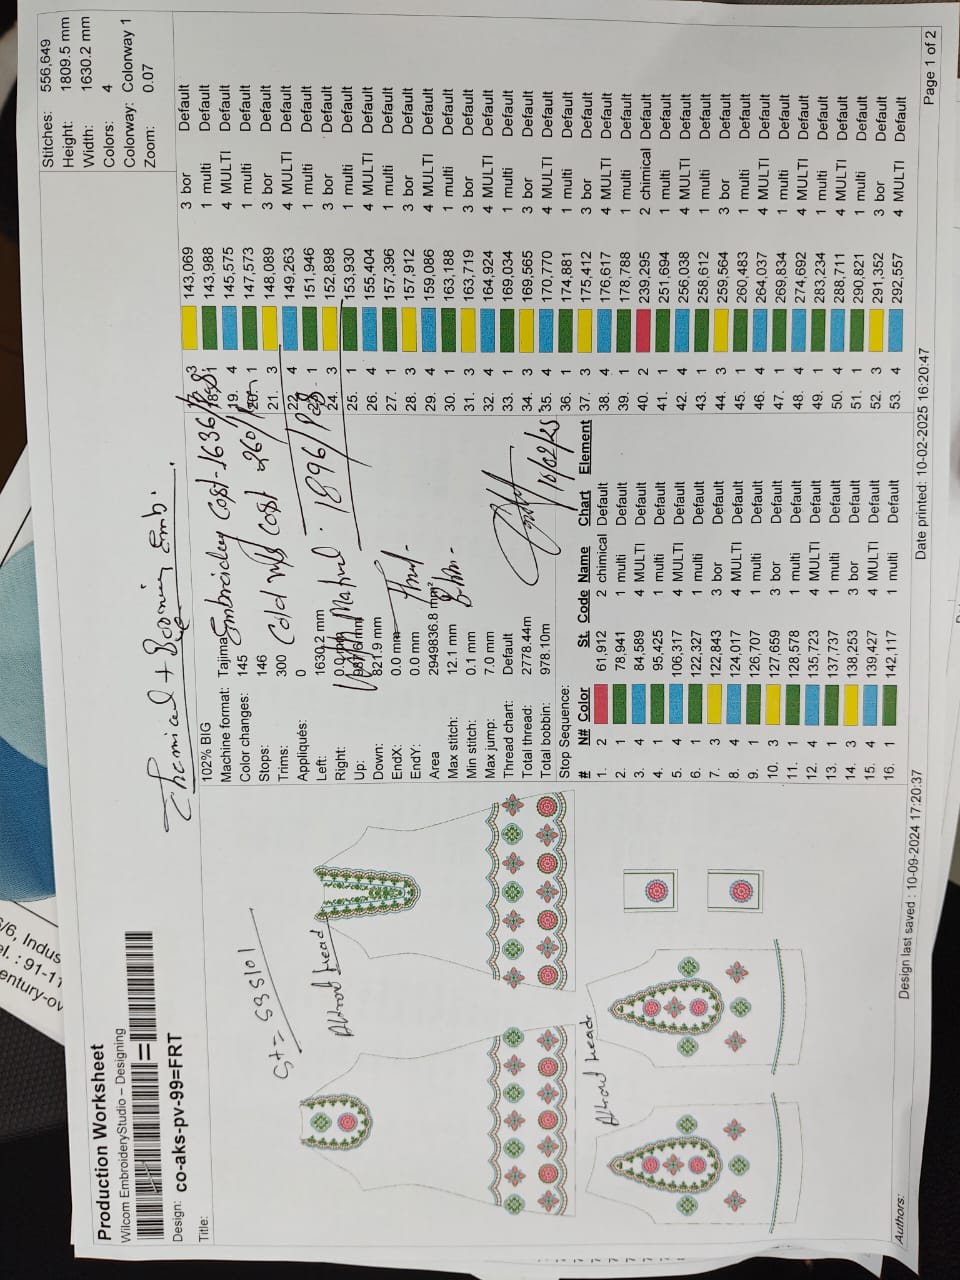 Production Worksheet
Wilcom EmbroideryStudio – Designing
Design: co-aks-pv-99=FRT
Title:
Stitches: 556,649
Height: 1809.5 mm
Width: 1630.2 mm
Colors: 4
Colorway: Colorway 1
Zoom: 0.07
Chemical +
Embroidery Cost - 1636/
Cost 260/
1896/
St= 535101
head
head
16/02/25
102% BIG
Machine format: Tajima
Color changes: 145
Stops: 146
Trims: 300
Appliqués: 0
Left: 1630.2 mm
Right: 0.0 mm
Up:
Down: 821.9 mm
EndX: 0.0 mm
EndY: 0.0 mm
Area 2949836.8 mm²
Max stitch: 12.1 mm
Min stitch: 0.1 mm
Max jump: 7.0 mm
Thread chart: Default
Total thread: 2778.44m
Total bobbin: 978.10m
Stop Sequence:
# N# Color St. Code Name Chart Element
1. 2 61,912 2 chimical Default
2. 1 78,941 1 multi Default
3. 4 84,589 4 MULTI Default
4. 1 95,425 1 multi Default
5. 4 106,317 4 MULTI Default
6. 1 122,327 1 multi Default
7. 3 122,843 3 bor Default
8. 4 124,017 4 MULTI Default
9. 1 126,707 1 multi Default
10. 3 127,659 3 bor Default
11. 1 128,578 1 multi Default
12. 4 135,723 4 MULTI Default
13. 1 137,737 1 multi Default
14. 3 138,253 3 bor Default
15. 4 139,427 4 MULTI Default
16. 1 142,117 1 multi Default
3 143,069 3 bor Default
1 143,988 1 multi Default
19. 4 145,575 4 MULTI Default
20. 1 147,573 1 multi Default
21. 3 148,089 3 bor Default
22. 4 149,263 4 MULTI Default
23. 1 151,946 1 multi Default
24. 3 152,898 3 bor Default
25. 1 153,930 1 multi Default
26. 4 155,404 4 MULTI Default
27. 1 157,396 1 multi Default
28. 3 157,912 3 bor Default
29. 4 159,086 4 MULTI Default
30. 1 163,188 1 multi Default
31. 3 163,719 3 bor Default
32. 4 164,924 4 MULTI Default
33. 1 169,034 1 multi Default
34. 3 169,565 3 bor Default
35. 4 170,770 4 MULTI Default
36. 1 174,881 1 multi Default
37. 3 175,412 3 bor Default
38. 4 176,617 4 MULTI Default
39. 1 178,788 1 multi Default
40. 2 239,295 2 chimical Default
41. 1 251,694 1 multi Default
42. 4 256,038 4 MULTI Default
43. 1 258,612 1 multi Default
44. 3 259,564 3 bor Default
45. 1 260,483 1 multi Default
46. 4 264,037 4 MULTI Default
47. 1 269,834 1 multi Default
48. 4 274,692 4 MULTI Default
49. 1 283,234 1 multi Default
50. 4 288,711 4 MULTI Default
51. 1 290,821 1 multi Default
52. 3 291,352 3 bor Default
53. 4 292,557 4 MULTI Default
Authors:
Design last saved : 10-09-2024 17:20:37
Date printed: 10-02-2025 16:20:47
Page 1 of 2
6/6, Indus
el. : 91-11
entury-ov